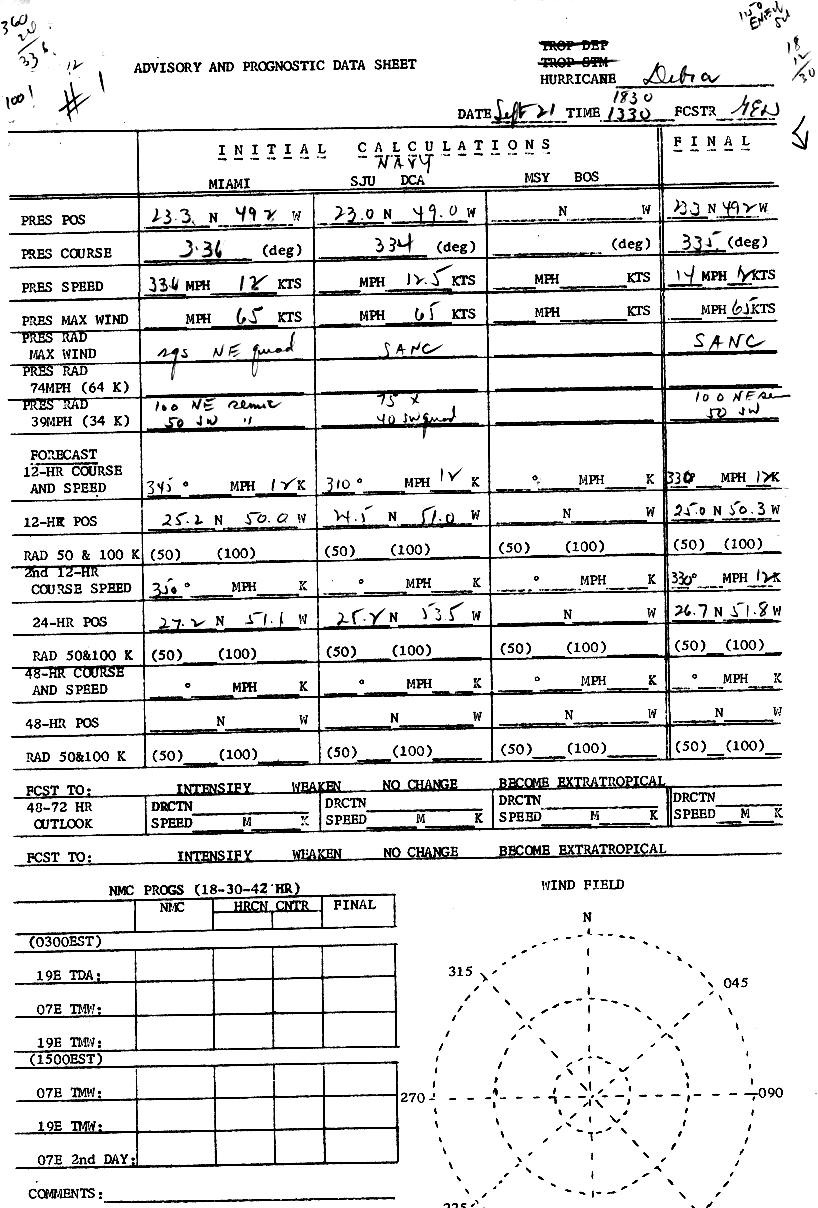 360
20
336
1001
12
# 1
1150
18
12
30
ADVISORY AND PROGNOSTIC DATA SHEET
TROP DEP
TROP STM
HURRICANE Debra
1830
DATE Sept 21 TIME 1330 FCSTR
INITIAL CALCULATIONS FINAL
NAVY
MIAMI SJU DCA MSY BOS
PRES POS 23.3 N 49.2 W 23.0 N 49.0 W N W 23.3 N 49.2 W
PRES COURSE 336 (deg) 334 (deg) (deg) 335 (deg)
PRES SPEED 336 MPH 12 KTS MPH 12.5 KTS MPH KTS 14 MPH 12 KTS
PRES MAX WIND MPH 65 KTS MPH 65 KTS MPH KTS MPH 65 KTS
PRES RAD
MAX WIND sqs NE quad SANC SANC
PRES RAD
74MPH (64 K)
PRES RAD 100 NE semic 75 x 100 NE sem
39MPH (34 K) 50 SW " 40 SW quad 50 SW
FORECAST
12-HR COURSE
AND SPEED 345 ° MPH 12 K 310 ° MPH 12 K ° MPH K 330 MPH 12 K
12-HR POS 25.2 N 50.0 W 24.5 N 51.0 W N W 25.0 N 50.3 W
RAD 50 & 100 K (50) (100) (50) (100) (50) (100) (50) (100)
2nd 12-HR
COURSE SPEED 350 ° MPH K ° MPH K ° MPH K 330° MPH 12 K
24-HR POS 27.2 N 51.1 W 25.8 N 53.5 W N W 26.7 N 51.8 W
RAD 50&100 K (50) (100) (50) (100) (50) (100) (50) (100)
48-HR COURSE
AND SPEED ° MPH K ° MPH K ° MPH K ° MPH K
48-HR POS N W N W N W N W
RAD 50&100 K (50) (100) (50) (100) (50) (100) (50) (100)
FCST TO: INTENSIFY WEAKEN NO CHANGE BECOME EXTRATROPICAL
48-72 HR DRCTN DRCTN DRCTN DRCTN
OUTLOOK SPEED M K SPEED M K SPEED M K SPEED M K
FCST TO: INTENSIFY WEAKEN NO CHANGE BECOME EXTRATROPICAL
NMC PROGS (18-30-42 HR) WIND FIELD
NMC HRCN CNTR FINAL
N
(0300EST)
315 045
19E TDA:
07E TMW:
19E TMW:
(1500EST)
07E TMW:
270 090
19E TMW:
07E 2nd DAY:
COMMENTS:
225